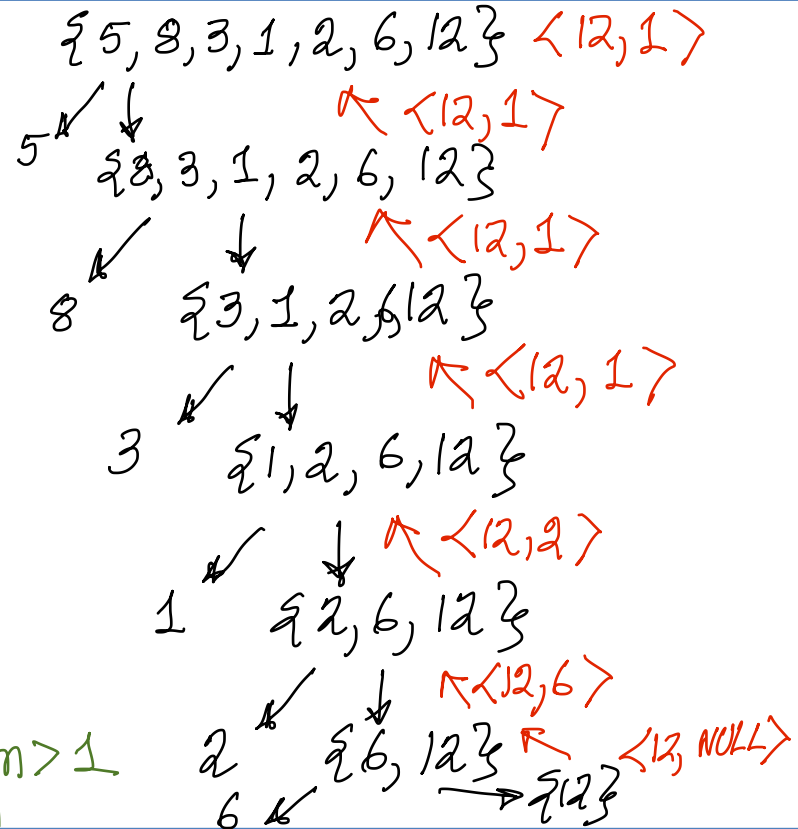 {5, 8, 3, 1, 2, 6, 12} <12, 1>
<12, 1>
5
{8, 3, 1, 2, 6, 12}
<12, 1>
8
{3, 1, 2, 6, 12}
<12, 1>
3
{1, 2, 6, 12}
<12, 2>
1
{2, 6, 12}
<12, 6>
n > 1
2
{6, 12}
<12, NULL>
6
{12}